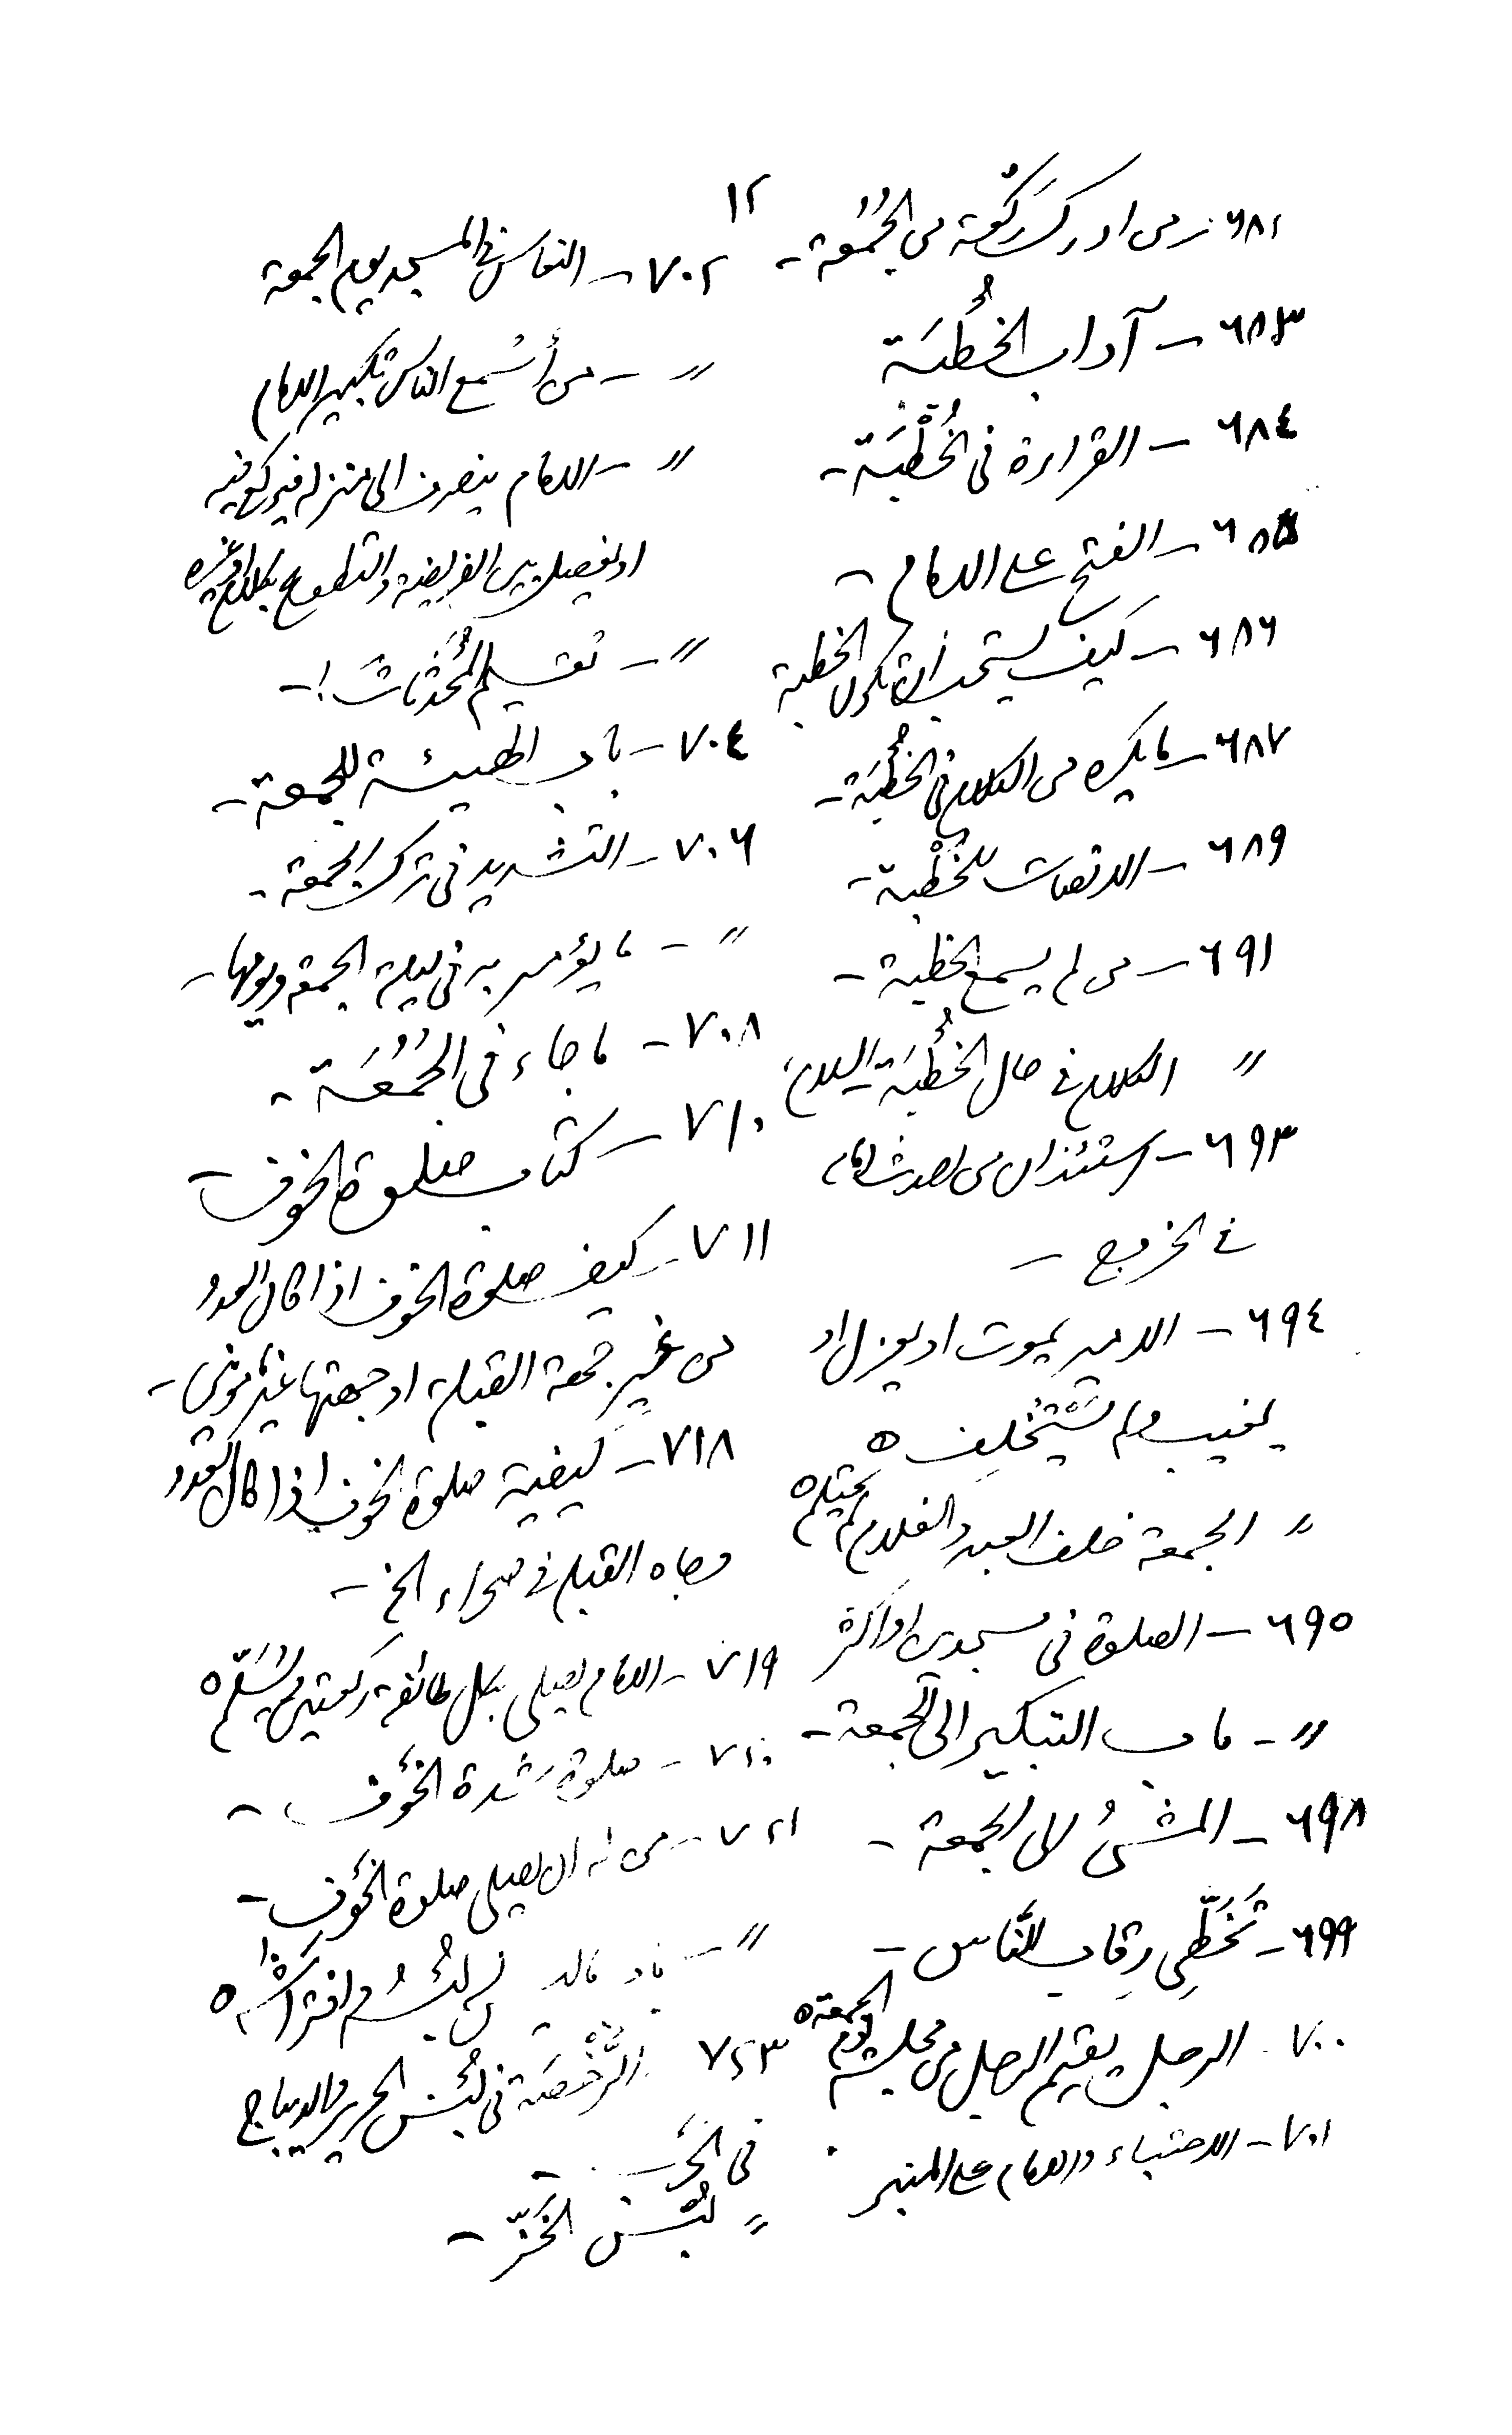 ١٢
٦٨٢- من ادرك ركعة من الجُمُعة -
٦٨٣ - آداب الخُطبَة
٦٨٤ - القراءة فى الخُطْبَة -
٦٨٥ - الفتح على الامام -
٦٨٦ - كيف يستحب أن تكون الخطبة
٦٨٧ - مايكره من الكلام فى الخُطْبَة -
٦٨٩ - الانصات للخُطْبة -
٦٩١ - من لم يسمع الخطبة -
〃 الكلام فى حال الخُطْبَة
٦٩٣ - استئذان من احدث امام
فى الخروج -
٦٩٤ - الامير يموت او يعزل او
يغيب ولم يَسْتَخلِف ٥
〃 الجمعة خلف العبد والغلام لم يحتلم ٥
٦٩٥ - الصلوة فى مسجدين او اكثر
〃 - باب التبكير الى الجمعة -
٦٩٨ - المشىُ الى الجمعة -
٦٩٩ - تَخَطِّى رِقاب النَّاس -
٧٠٠ - الرجل يقيم الرجل من مجلسه يوم الجمعة ٥
٧٠١ - الاحتباء والامام على المنبر
٧٠٢ - النعاس فى المسجد يوم الجمعة
〃 - من أسْمع الناس تكبير الامام
〃 - الامام ينصرف الى منزله فيركع فيه
او يفصل بين الفريضة والتطوع بكلام او غيره
〃 -
٧٠٤ - باب الهيئة للجمعة -
٧٠٦ - التشديد فى ترك الجمعة -
〃 - ما يؤمر به فى ليلة الجمعة ويومها -
٧٠٨ - ما جاء فى الجُمُعَة -
٧١٠ - كتاب صلوة الخوف -
٧١١ - كيف صلوة الخوف اذا كان العدو
من غير جهة القبلة او جهتها غير مأمونين -
٧١٨ - كيفية صلوة الخوف اذا كان العدو
وجاه القبلة فى صحراء الخ -
٧١٩ - الامام يصلى بكل طائفة ركعتين ويُسَلِّم ٥
٧٢٠ - صلوة شدة الخَوْف -
٧٢١ - من له ان يصلى صلوة الخَوْف -
〃 - باب مالا لبْسُه وافتراشه ٥
٧٢٣ الرُّخْصَة فى لُبْس الحرير والديباج
فى الحَرْب -
〃 لُبْس الخَزّ -